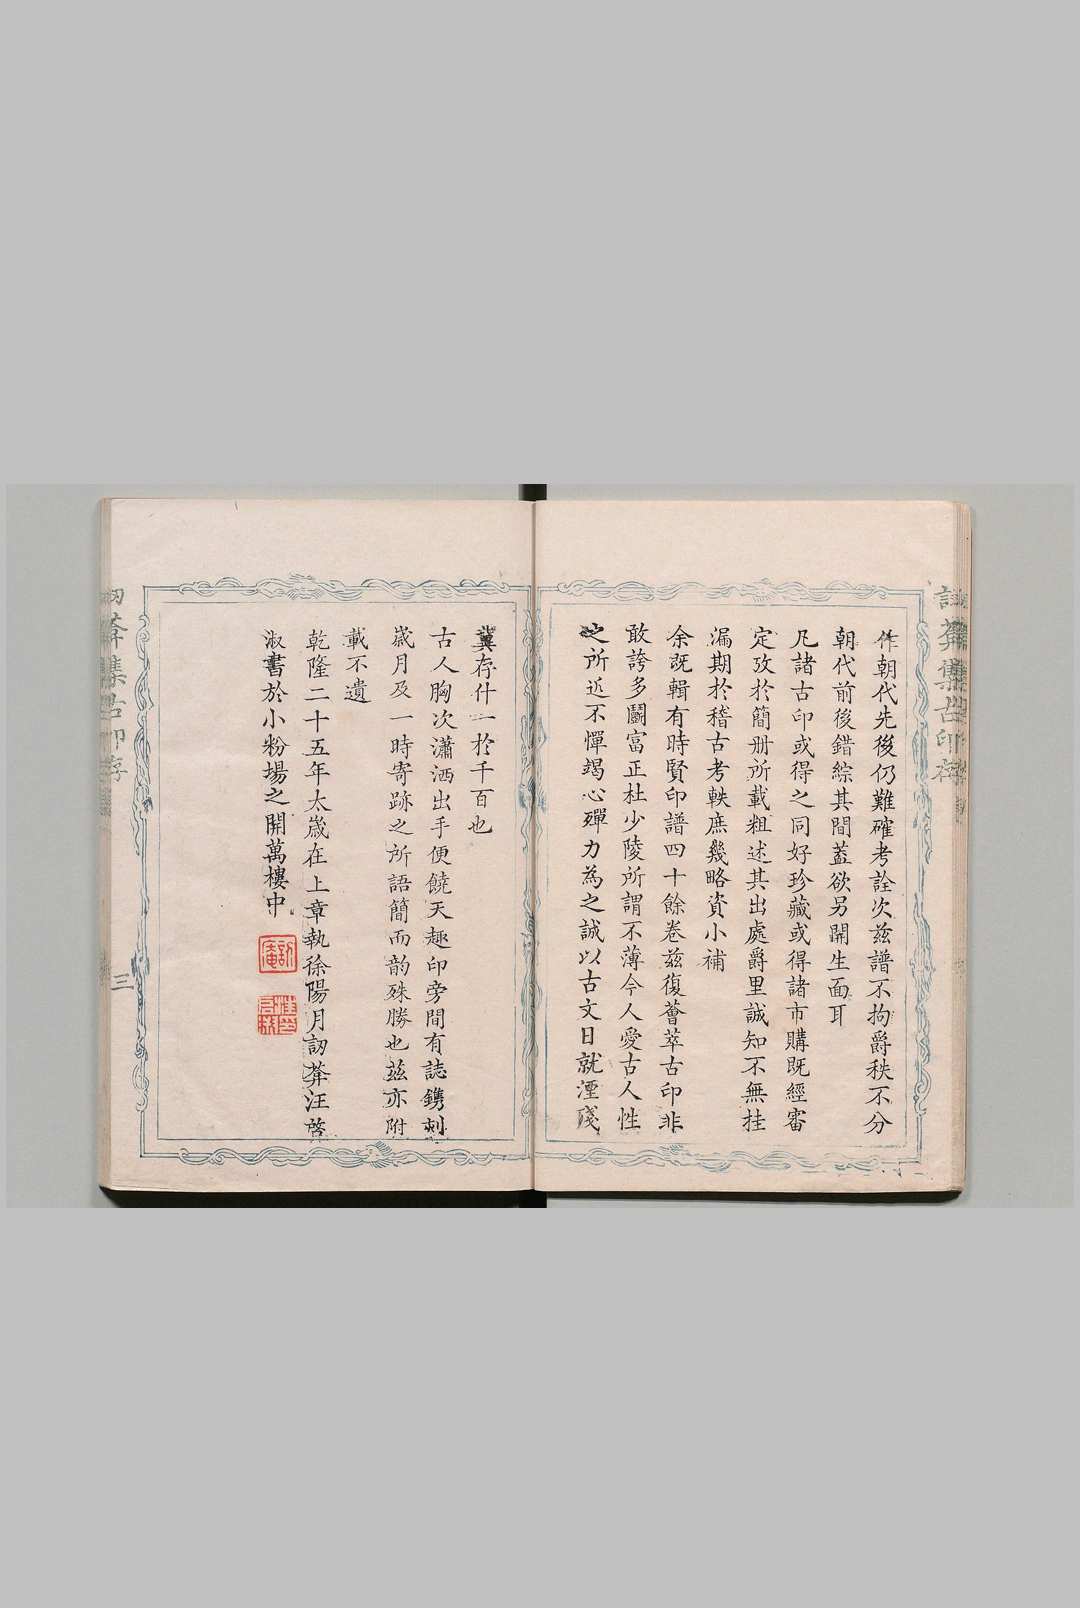 作朝代先後仍難確考詮次茲譜不拘爵秩不分
朝代前後錯綜其間蓋欲另開生面耳
凡諸古印或得之同好珍藏或得諸市購既經審
定攷於簡册所載粗述其出處爵里誠知不無挂
漏期於稽古考軼庶幾略資小補
余既輯有時賢印譜四十餘卷茲復薈萃古印非
敢誇多鬬富正杜少陵所謂不薄今人愛古人性
之所近不憚竭心殫力為之誠以古文日就湮殘
冀存什一於千百也
古人胸次瀟洒出手便饒天趣印旁間有誌鐫刻
歲月及一時寄跡之所語簡而韵殊勝也茲亦附
載不遺
乾隆二十五年太歲在上章執徐陽月訒葊汪啓
淑書於小粉場之開萬樓中
訒葊集古印存
三